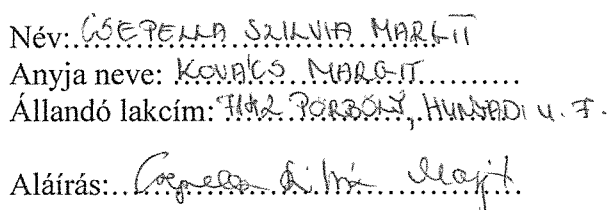 Név: CSEPELLA SZILVIA MARGIT
Anyja neve: KOVÁCS MARGIT
Állandó lakcím: 7142 PÖRBÖLY, HUNYADI u. 7.
Aláírás: Csepella Szilvia Margit